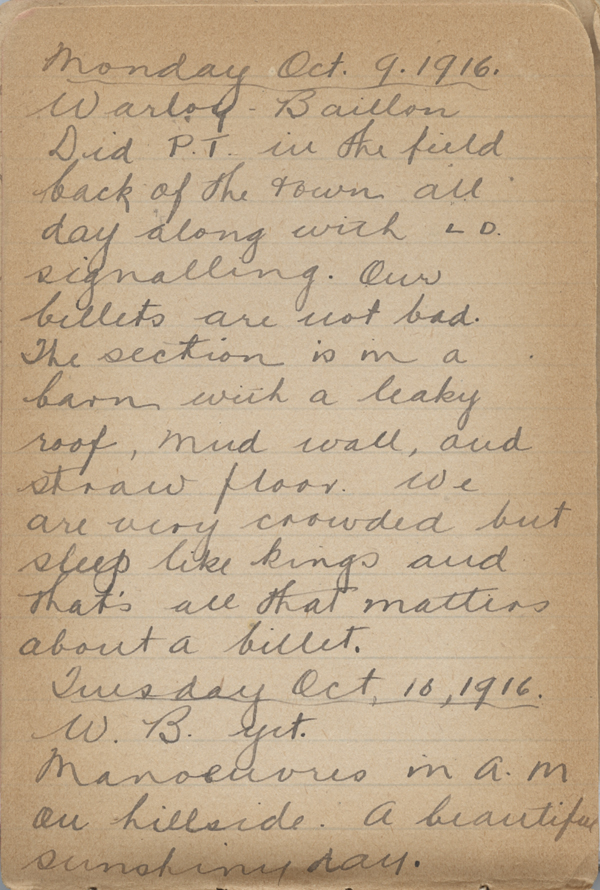 Monday Oct. 9. 1916.
Warloy - Baillon
Did P.T. in the field
back of the town all
day along with L D.
signalling. Our
billets are not bad.
The section is in a
barn with a leaky
roof, mud wall, and
straw floor. We
are very crowded but
sleep like kings and
that's all that matters
about a billet.
Tuesday Oct, 10, 1916.
W. B. yet.
Manoeuvres in A. M
on hillside. A beautiful
sunshiny day.